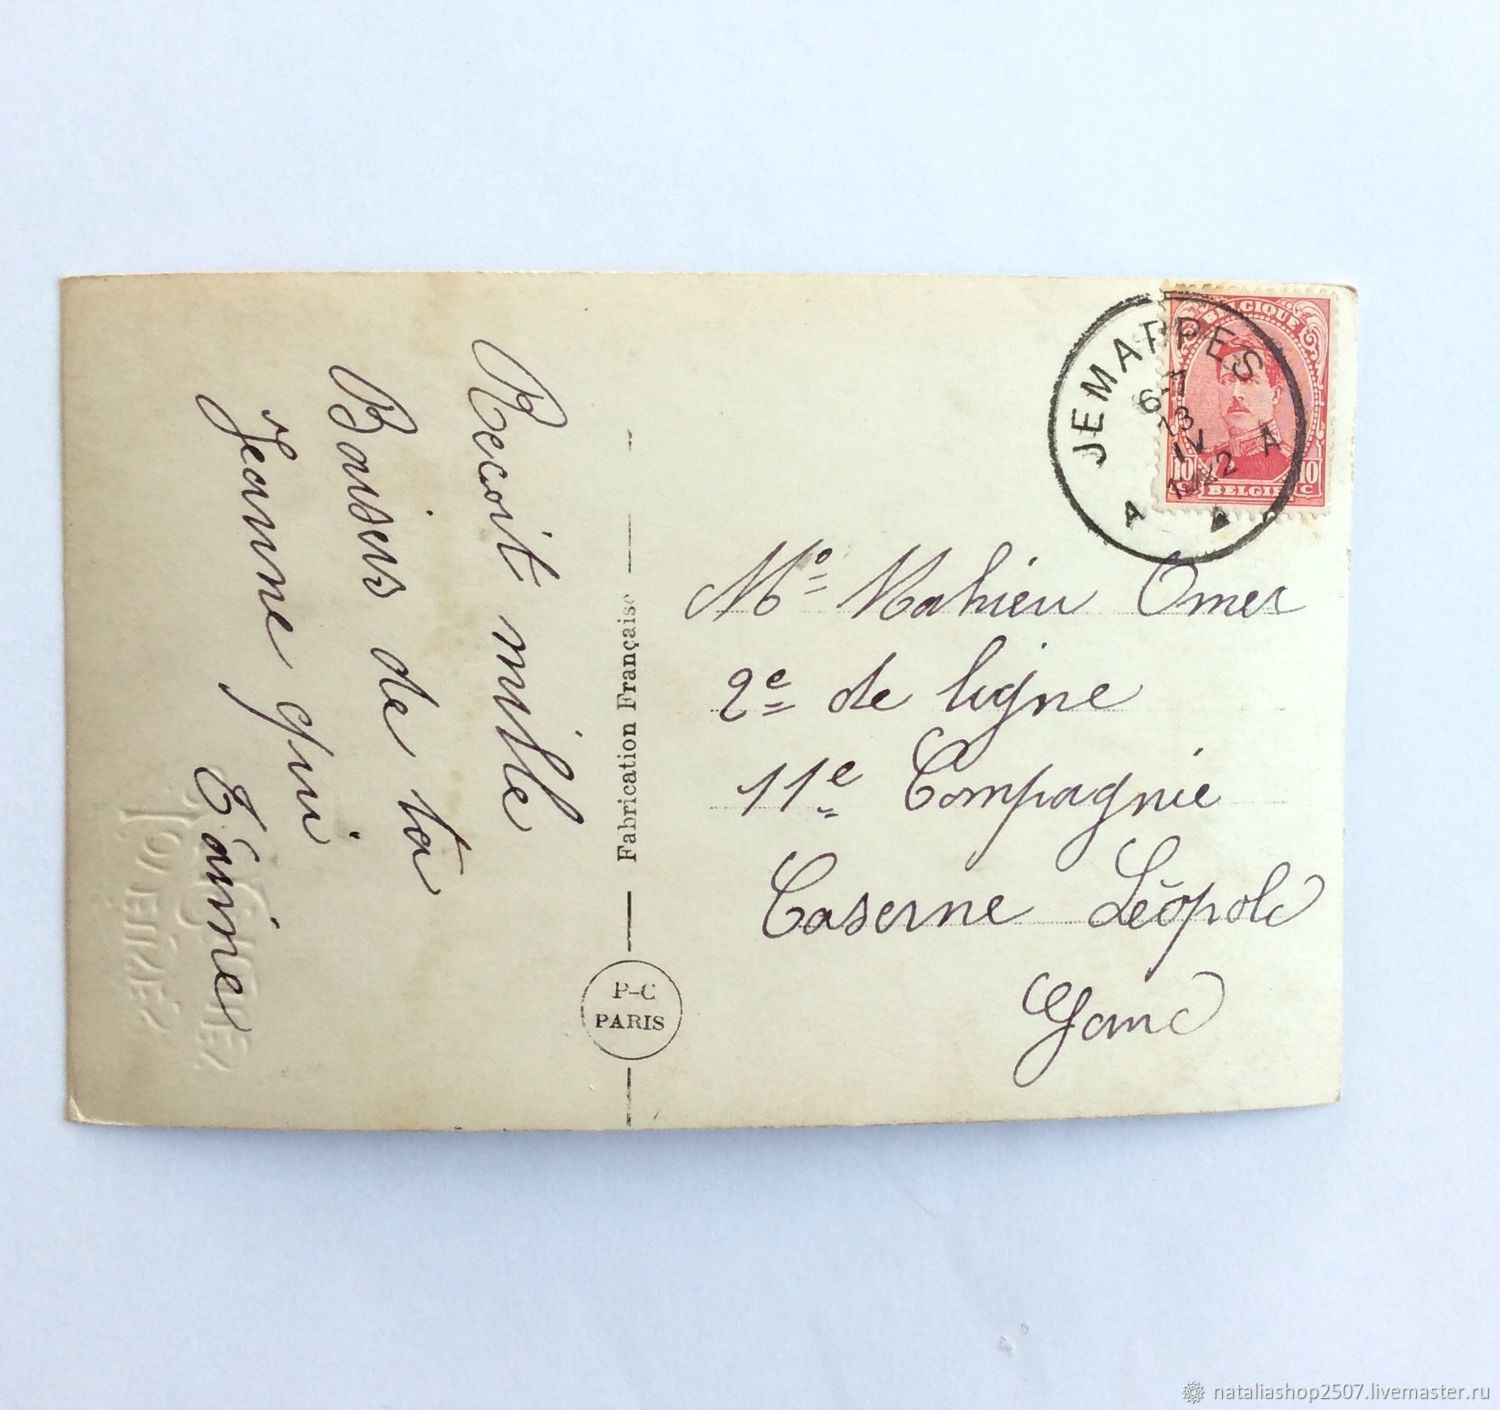 Recoit mille
Baisers de ta
Jeanne qui
t'aime
Fabrication Française
P-C
PARIS
BELGIQUE
10 C
10 C
BELGIE
JEMAPPES
6-7
13
IV
1922
A
A
Mr Mahieu Omer
2e de ligne
11e Compagnie
Caserne Léopold
Gand
JOYEUSES
nataliashop2507.livemaster.ru